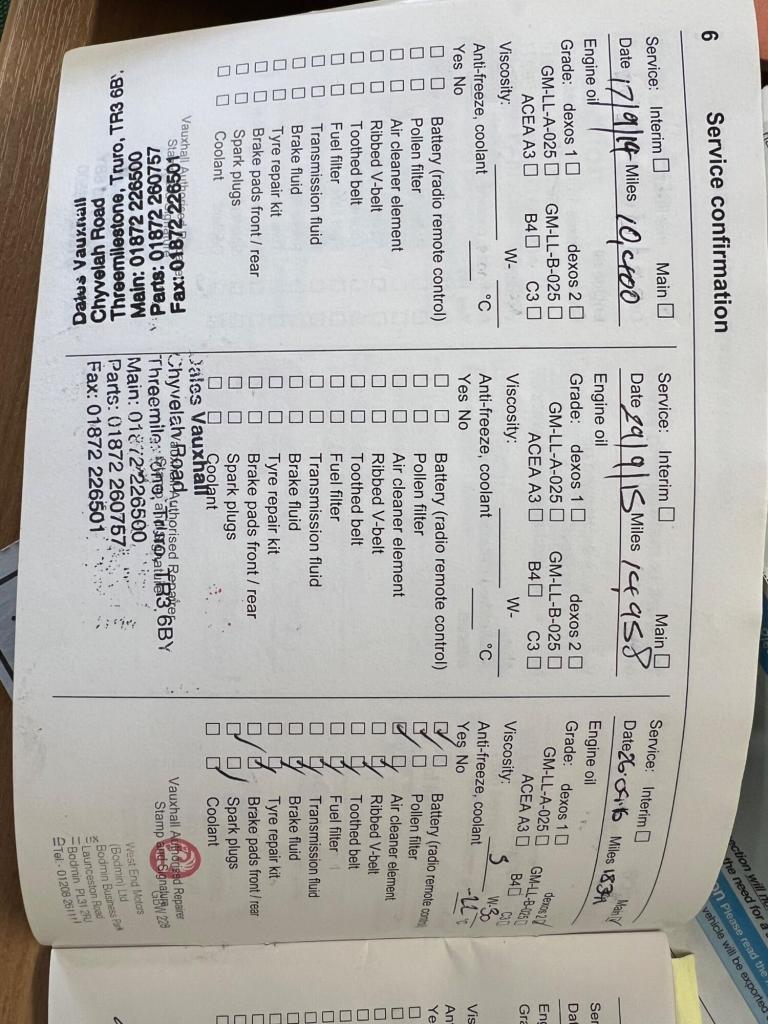 6
Service confirmation
Service: Interim Main
Date 17/9/14 Miles 10,400
Engine oil
Grade: dexos 1 dexos 2
GM-LL-A-025 GM-LL-B-025
ACEA A3 B4 C3
Viscosity: W-
Anti-freeze, coolant °C
Yes No
Battery (radio remote control)
Pollen filter
Air cleaner element
Ribbed V-belt
Toothed belt
Fuel filter
Transmission fluid
Brake fluid
Tyre repair kit
Brake pads front / rear
Spark plugs
Coolant
Vauxhall Authorised
Dales Vauxhall
Chyvelah Road
Threemilestone, Truro, TR3 6BY
Main: 01872 226500
Parts: 01872 260757
Fax: 01872 226501
Service: Interim Main
Date 29/9/15 Miles 14958
Engine oil
Grade: dexos 1 dexos 2
GM-LL-A-025 GM-LL-B-025
ACEA A3 B4 C3
Viscosity: W-
Anti-freeze, coolant °C
Yes No
Battery (radio remote control)
Pollen filter
Air cleaner element
Ribbed V-belt
Toothed belt
Fuel filter
Transmission fluid
Brake fluid
Tyre repair kit
Brake pads front / rear
Spark plugs
Coolant
Vauxhall Authorised Repairer
Stamp and Signature
Dales Vauxhall
Chyvelah Road
Threemilestone, Truro, TR3 6BY
Main: 01872 226500
Parts: 01872 260757
Fax: 01872 226501
Service: Interim Main
Date Miles
Engine oil
Grade: dexos 1 dexos 2
GM-LL-A-025 GM-LL-B-025
ACEA A3 B4 C3
Viscosity: 5 W-30
Anti-freeze, coolant
Yes No
Battery (radio remote
Pollen filter
Air cleaner element
Ribbed V-belt
Toothed belt
Fuel filter
Transmission fluid
Brake fluid
Tyre repair kit
Brake pads front / rear
Spark plugs
Coolant
Vauxhall Authorised Repairer
Stamp and Signature
West End Motors
(Bodmin) Ltd
Bodmin Business Park
Launceston Road
Bodmin PL31 2RJ
Tel: 01208
the need for a
Please read the
vehicle will be exported